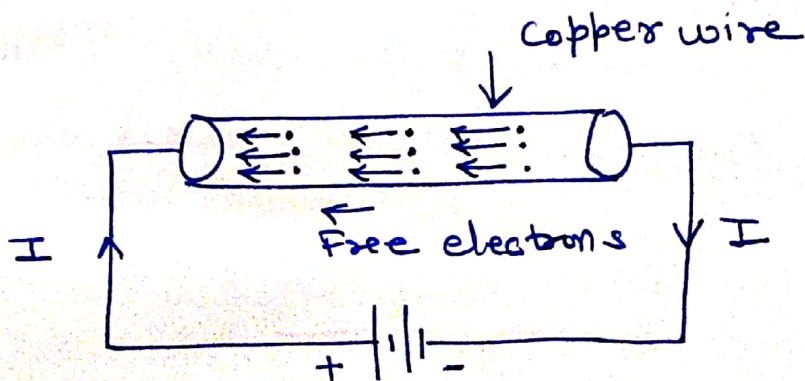 Copper wire
Free electrons
I
I
+
-